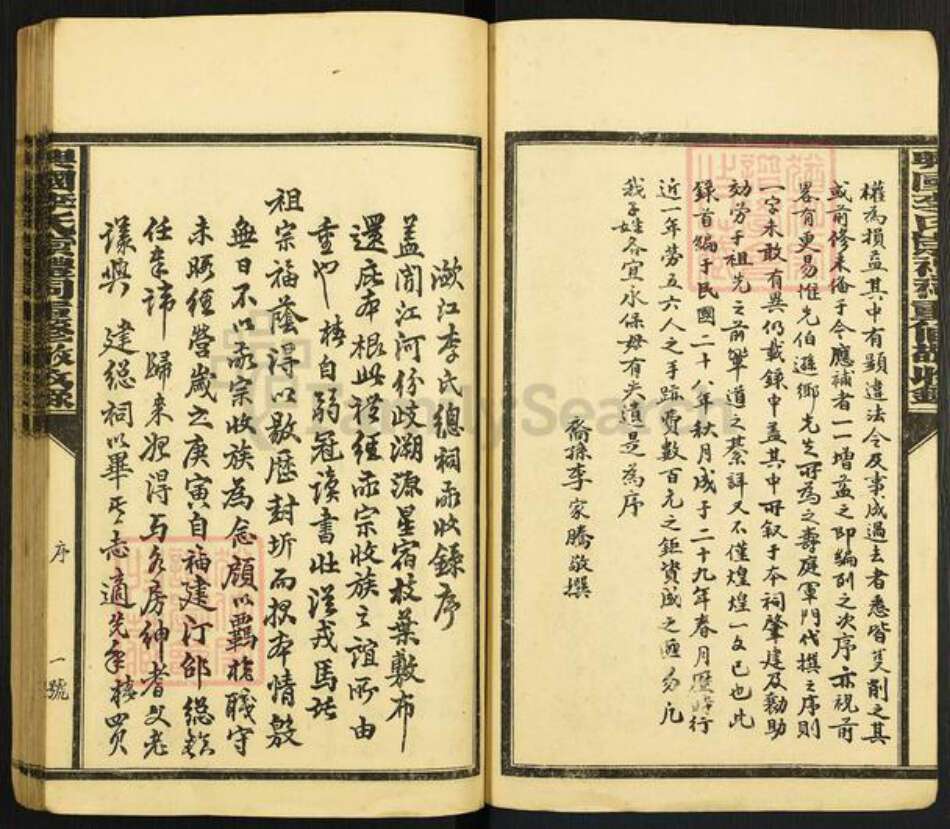 權為損益其中有顯違法令及事成過去者悉皆芟削之其
或前修未備于今應補者一一增益之即編列之次序亦視前
畧有更易惟先伯遜鄉先生所為之壽庭軍門代撰之序則
一字未敢有異仍載錄中蓋其中所叙于本祠肇建及勷助
効勞于祖先之前輩道之綦詳又不僅煌煌一文已也此
錄首編于民國二十八年秋月成于二十九年春月歷時行
近一年勞五六人之手跡費數百元之鉅資成之匪易凡
我子姓各宜永保毋有失遺是為序
裔孫李家騰敬撰
潋江李氏總祠敬收錄序
盖聞江河份歧溯源星宿枝葉敷布
還庇本根此禮經敬宗收族之誼所由
重也 椿自弱冠讀書壯從戎馬託
祖宗福蔭得以敭歷封圻而根本情殷
無日不以敬宗收族為念顧以羈棲職守
未暇經營歲之庚寅自福建汀邵總鎮
任奉諱歸来獲得与各房紳耆父老
議興 建總祠以畢其志適先年椿買
序
一號
興國李氏崇禮祠重修敬收錄
興國李氏崇禮祠重修敬收錄
FamilySearch